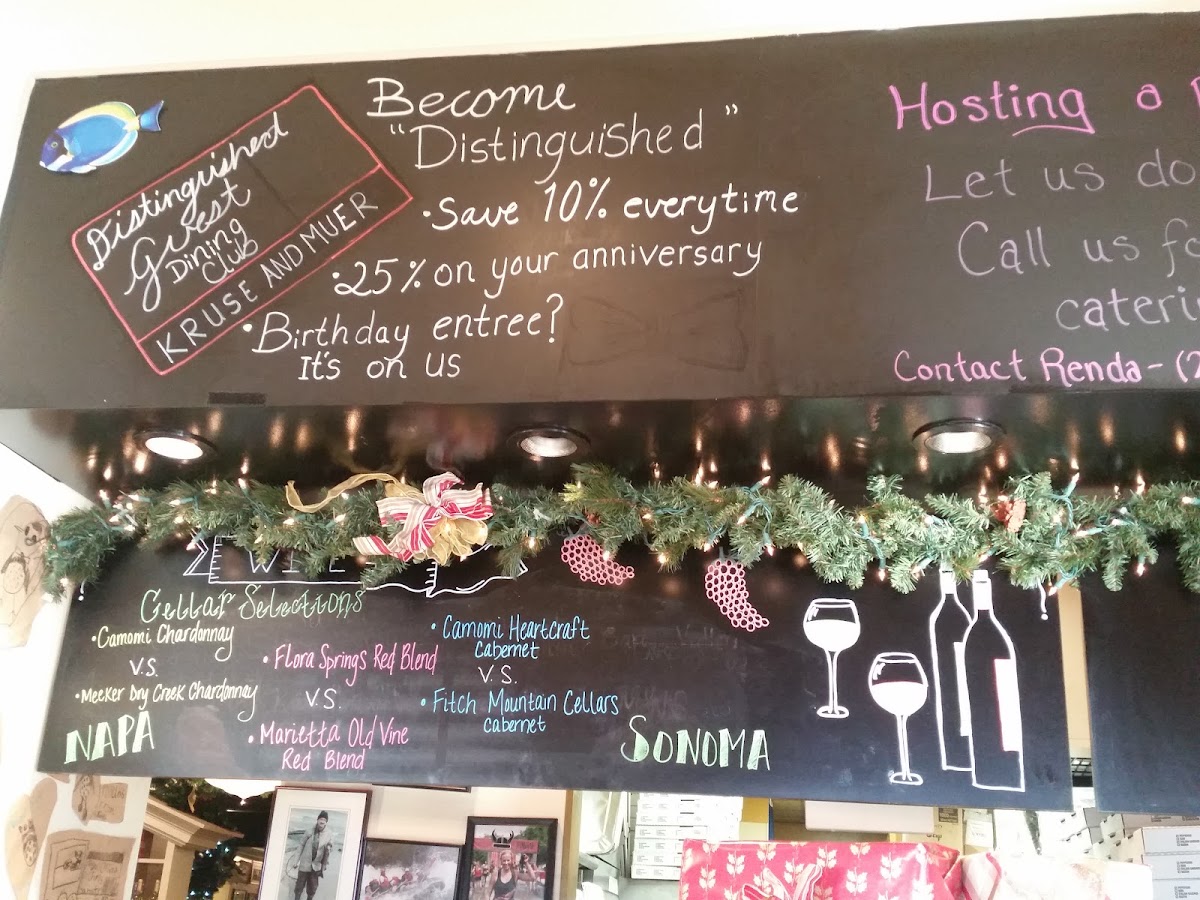 Become
"Distinguished"
• Save 10% everytime
• 25% on your anniversary
• Birthday entree?
It's on us
Distinguished
Guest
Dining
Club
KRUSE AND MUER
Hosting a
Let us do
Call us
Contact Renda - (
Cellar Selections
• Camomi Chardonnay
V.S.
• Meeker Dry Creek Chardonnay
NAPA
• Flora Springs Red Blend
V.S.
• Marietta Old Vine
Red Blend
• Camomi Heartcraft
cabernet
V.S.
• Fitch Mountain Cellars
cabernet
SONOMA